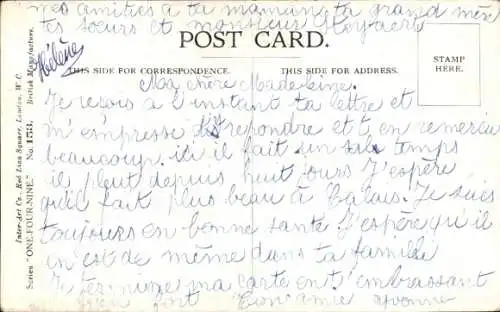 mes amitiés à ta maman ta grand mère
tes sœurs et monsieur
Hélène
POST CARD.
THIS SIDE FOR CORRESPONDENCE.
THIS SIDE FOR ADDRESS.
STAMP
HERE.
Inter-Art Co., Red Lion Square, London, W.C.
British Manufacture.
Series "ONE-FOUR-NINE." No. 1531.
Ma chère Madeleine.
Je reçois à l'instant ta lettre et
m'empresse d'y répondre et t'en remercie
beaucoup. ici il fait un sale temps
il pleut depuis huit jours J'espère
qu'il fait plus beau à Calais. Je suis
toujours en bonne santé J'espère qu'il
en est de même dans ta famille
Je termine ma carte en t'embrassant
bien fort Ton amie Yvonne